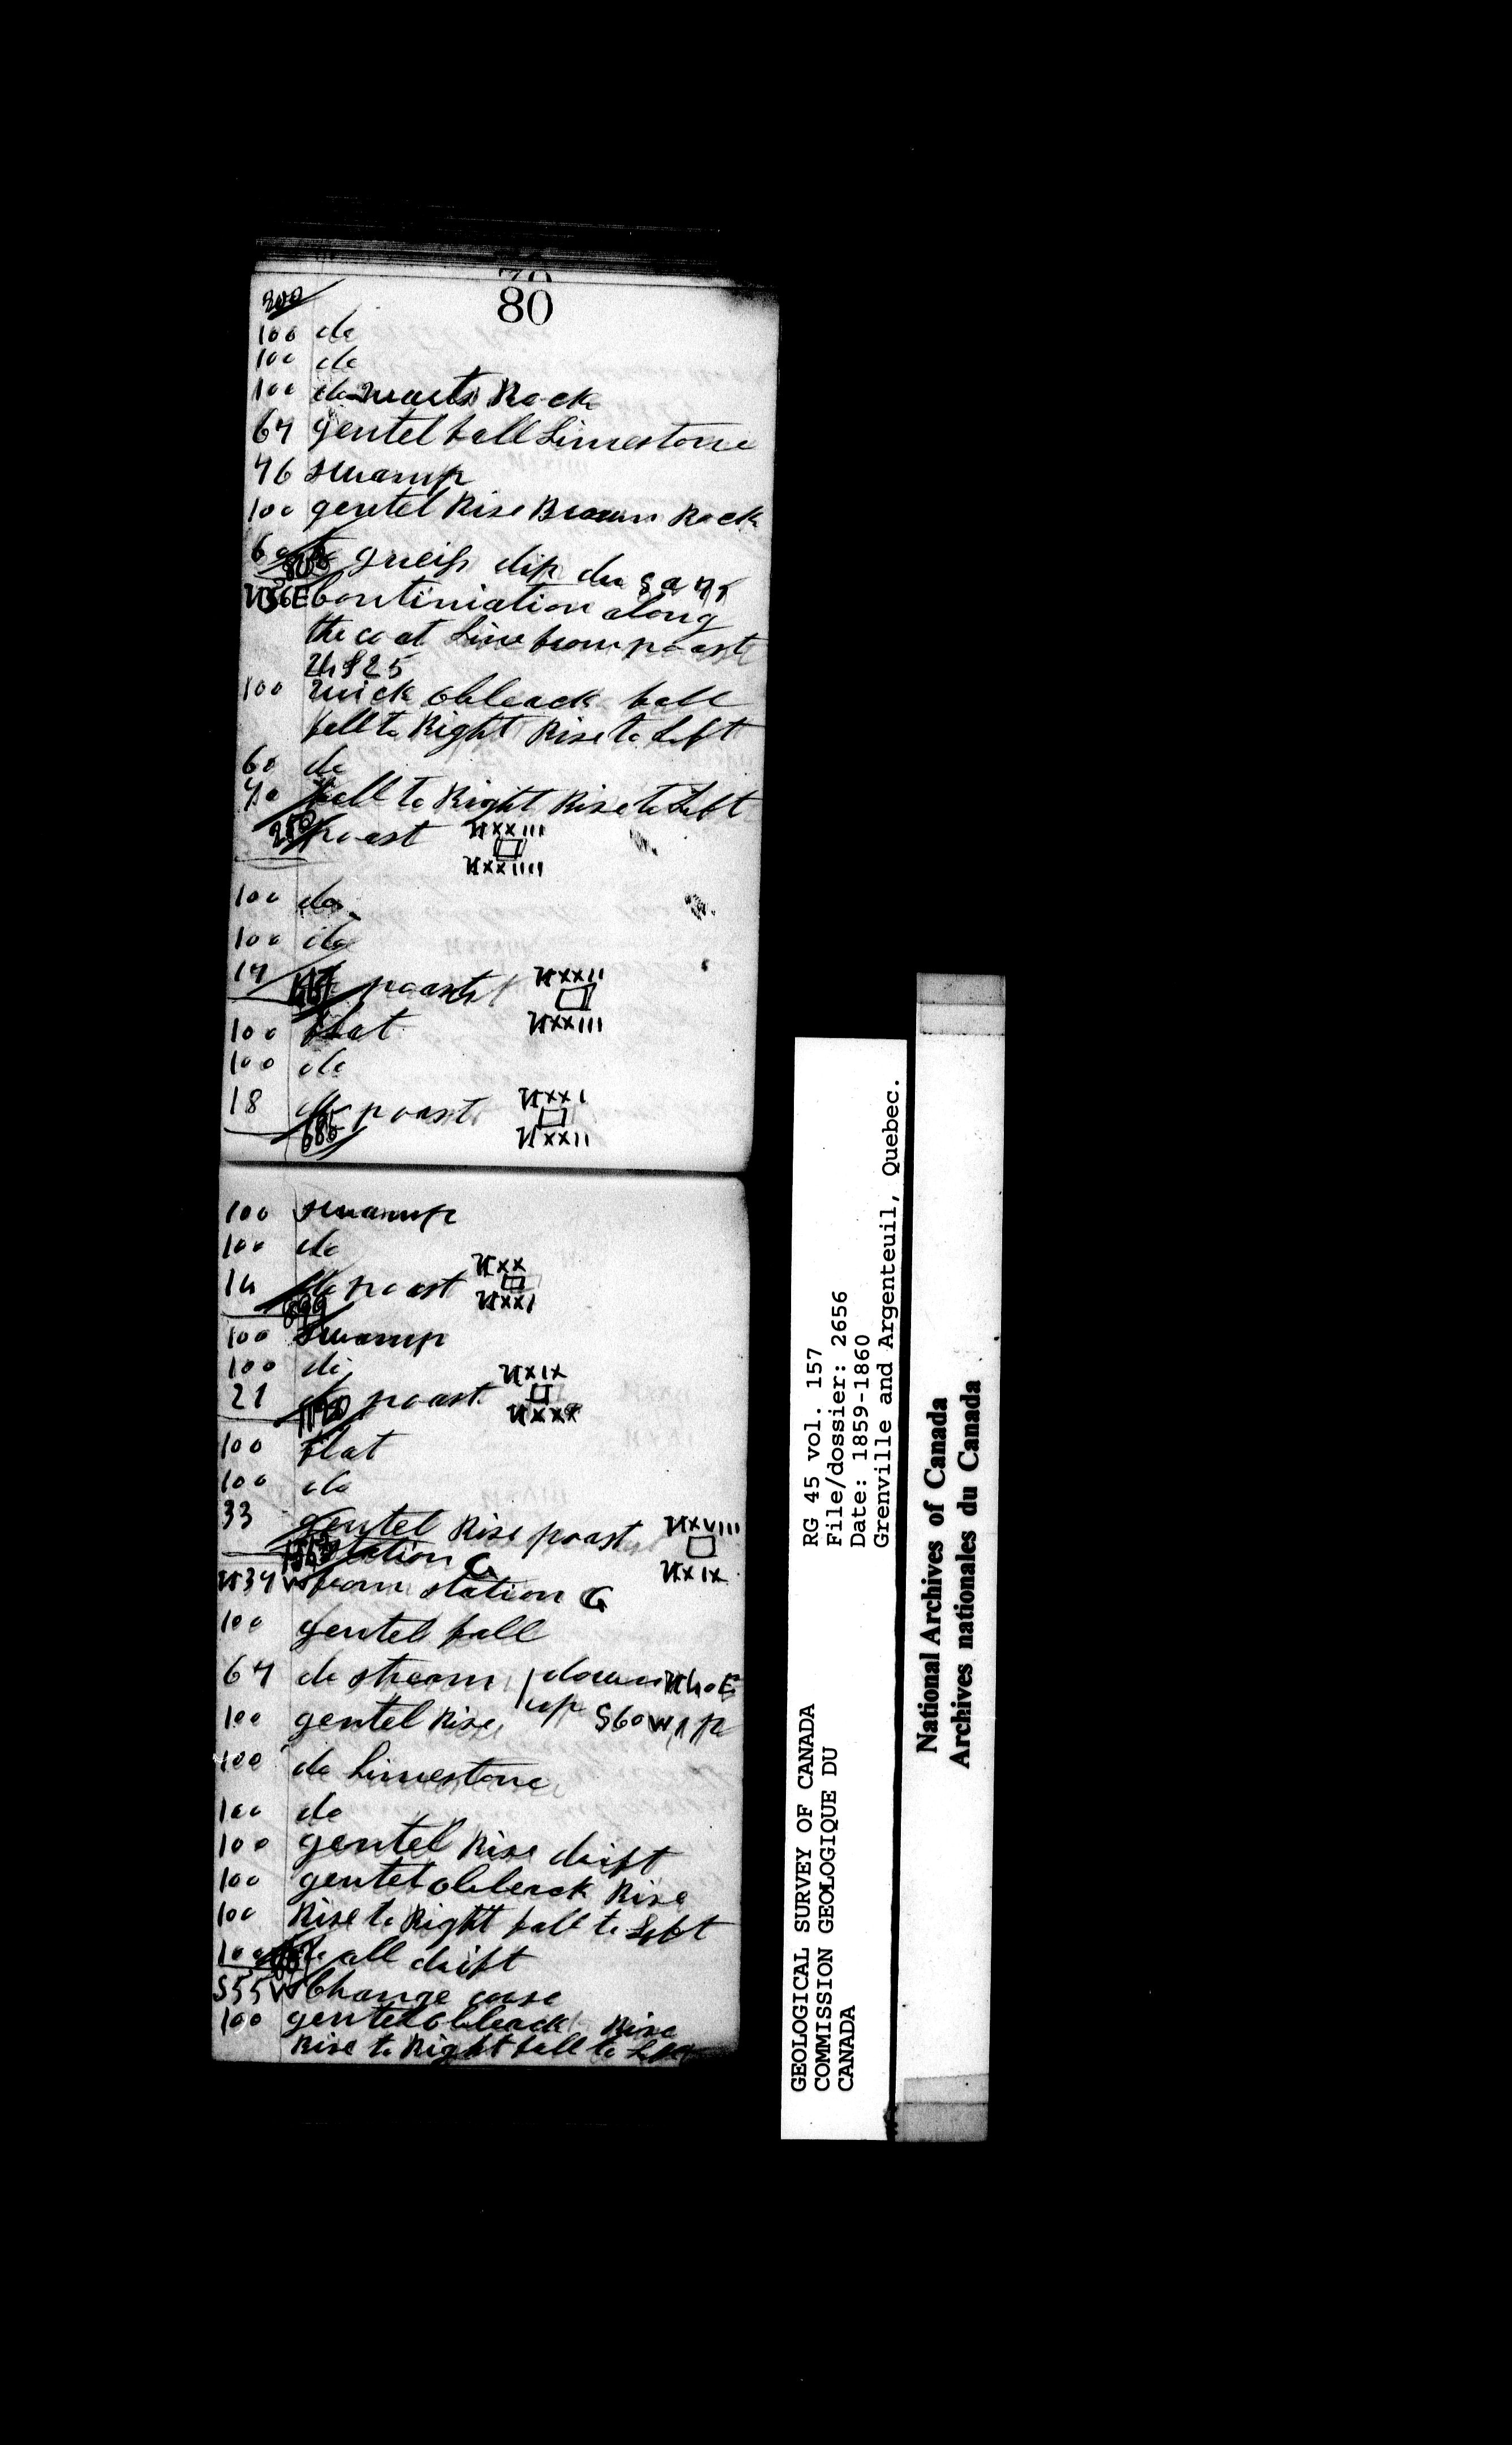 80
200
100 do
100 do
100 do quarts Rock
67 gentel fall Limestone
76 swamp
100 gentel Rise Brown Rock
60 do gneiss dip du S a 75
N56E Continiation along
the coat Line from poast
24 & 25
100 quick obleack fall
fall to Right Rise to Left
60 do
70 fall to Right Rise to Left
250 poast NXXIII
NXXIIII
100 do
100 do
17 do poast NXXII
467 NXXIII
100 flat
100 do
18 do poast NXXI
685 NXXII
100 swamp
100 do
14 do poast NXX
899 NXXI
100 swamp
100 do
21 do poast NXIX
1120 NXX
100 flat
100 do
33 gentel Rise poast NXVIII
station G NXIX
N34W from station G
100 gentel fall
67 do stream down N40E
up S60W
100 gentel Rise
100 do Limestone
100 do
100 gentel Rise drift
100 gentel obleack Rise
100 Rise to Right fall to Left
100 do all drift
S55W Change corse
100 gentel obleack Rise
Rise to Right fall to Left
GEOLOGICAL SURVEY OF CANADA
COMMISSION GEOLOGIQUE DU
CANADA
RG 45 vol. 157
File/dossier: 2656
Date: 1859-1860
Grenville and Argenteuil, Quebec.
National Archives of Canada
Archives nationales du Canada